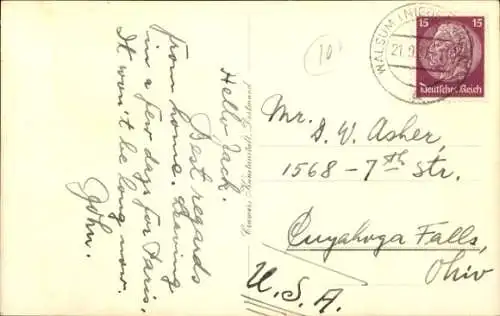 Hello Jack.
Best regards
from home. Leaving
in a few days for Paris.
It won't be long now.
John.
10
WALSUM (NIEDERRH
21.9.
15 15
Deutsches Reich
Mr. D. W. Asher,
1568-7th Str.
Cuyahoga Falls,
Ohio
U.S.A.